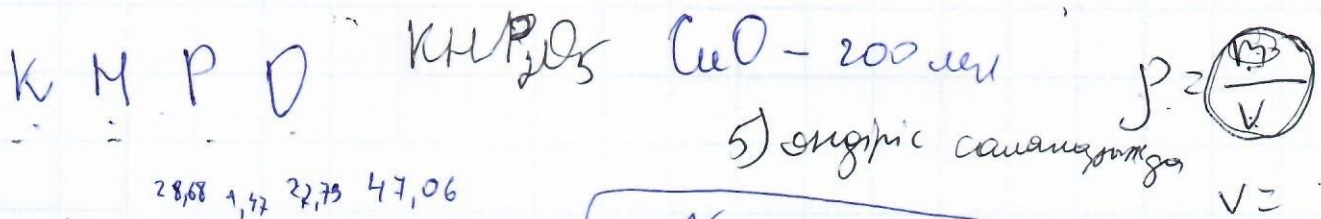 K H P O KHP₂O₅ CuO - 200 мл ρ = m/V
5) өндіріс саласында
28,68 1,47 22,79 47,06 V =